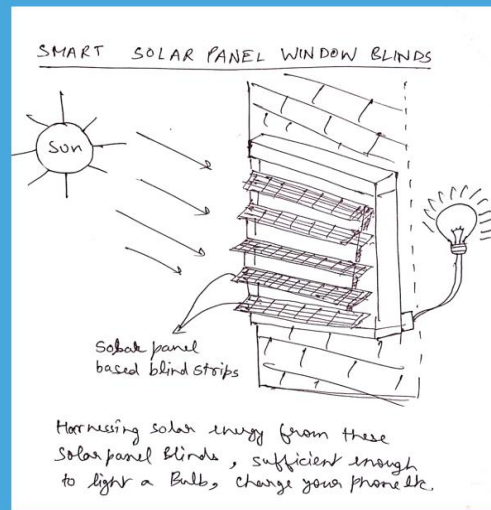 SMART SOLAR PANEL WINDOW BLINDS
Sun
Solar panel
based blind strips
Harnessing solar energy from these
Solar panel Blinds, sufficient enough
to light a Bulb, charge your phone etc.